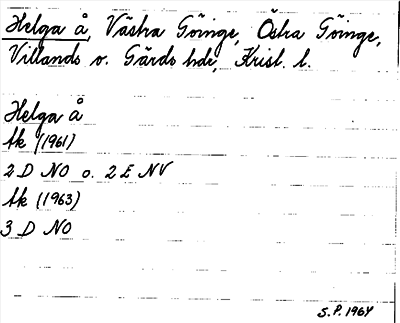 Helga å, Västra Göinge, Östra Göinge,
Villands o. Gärds hde, Krist. l.
Helga å
tk (1961)
2 D NO o. 2 E NV
tk (1963)
3 D NO
S.P. 1964